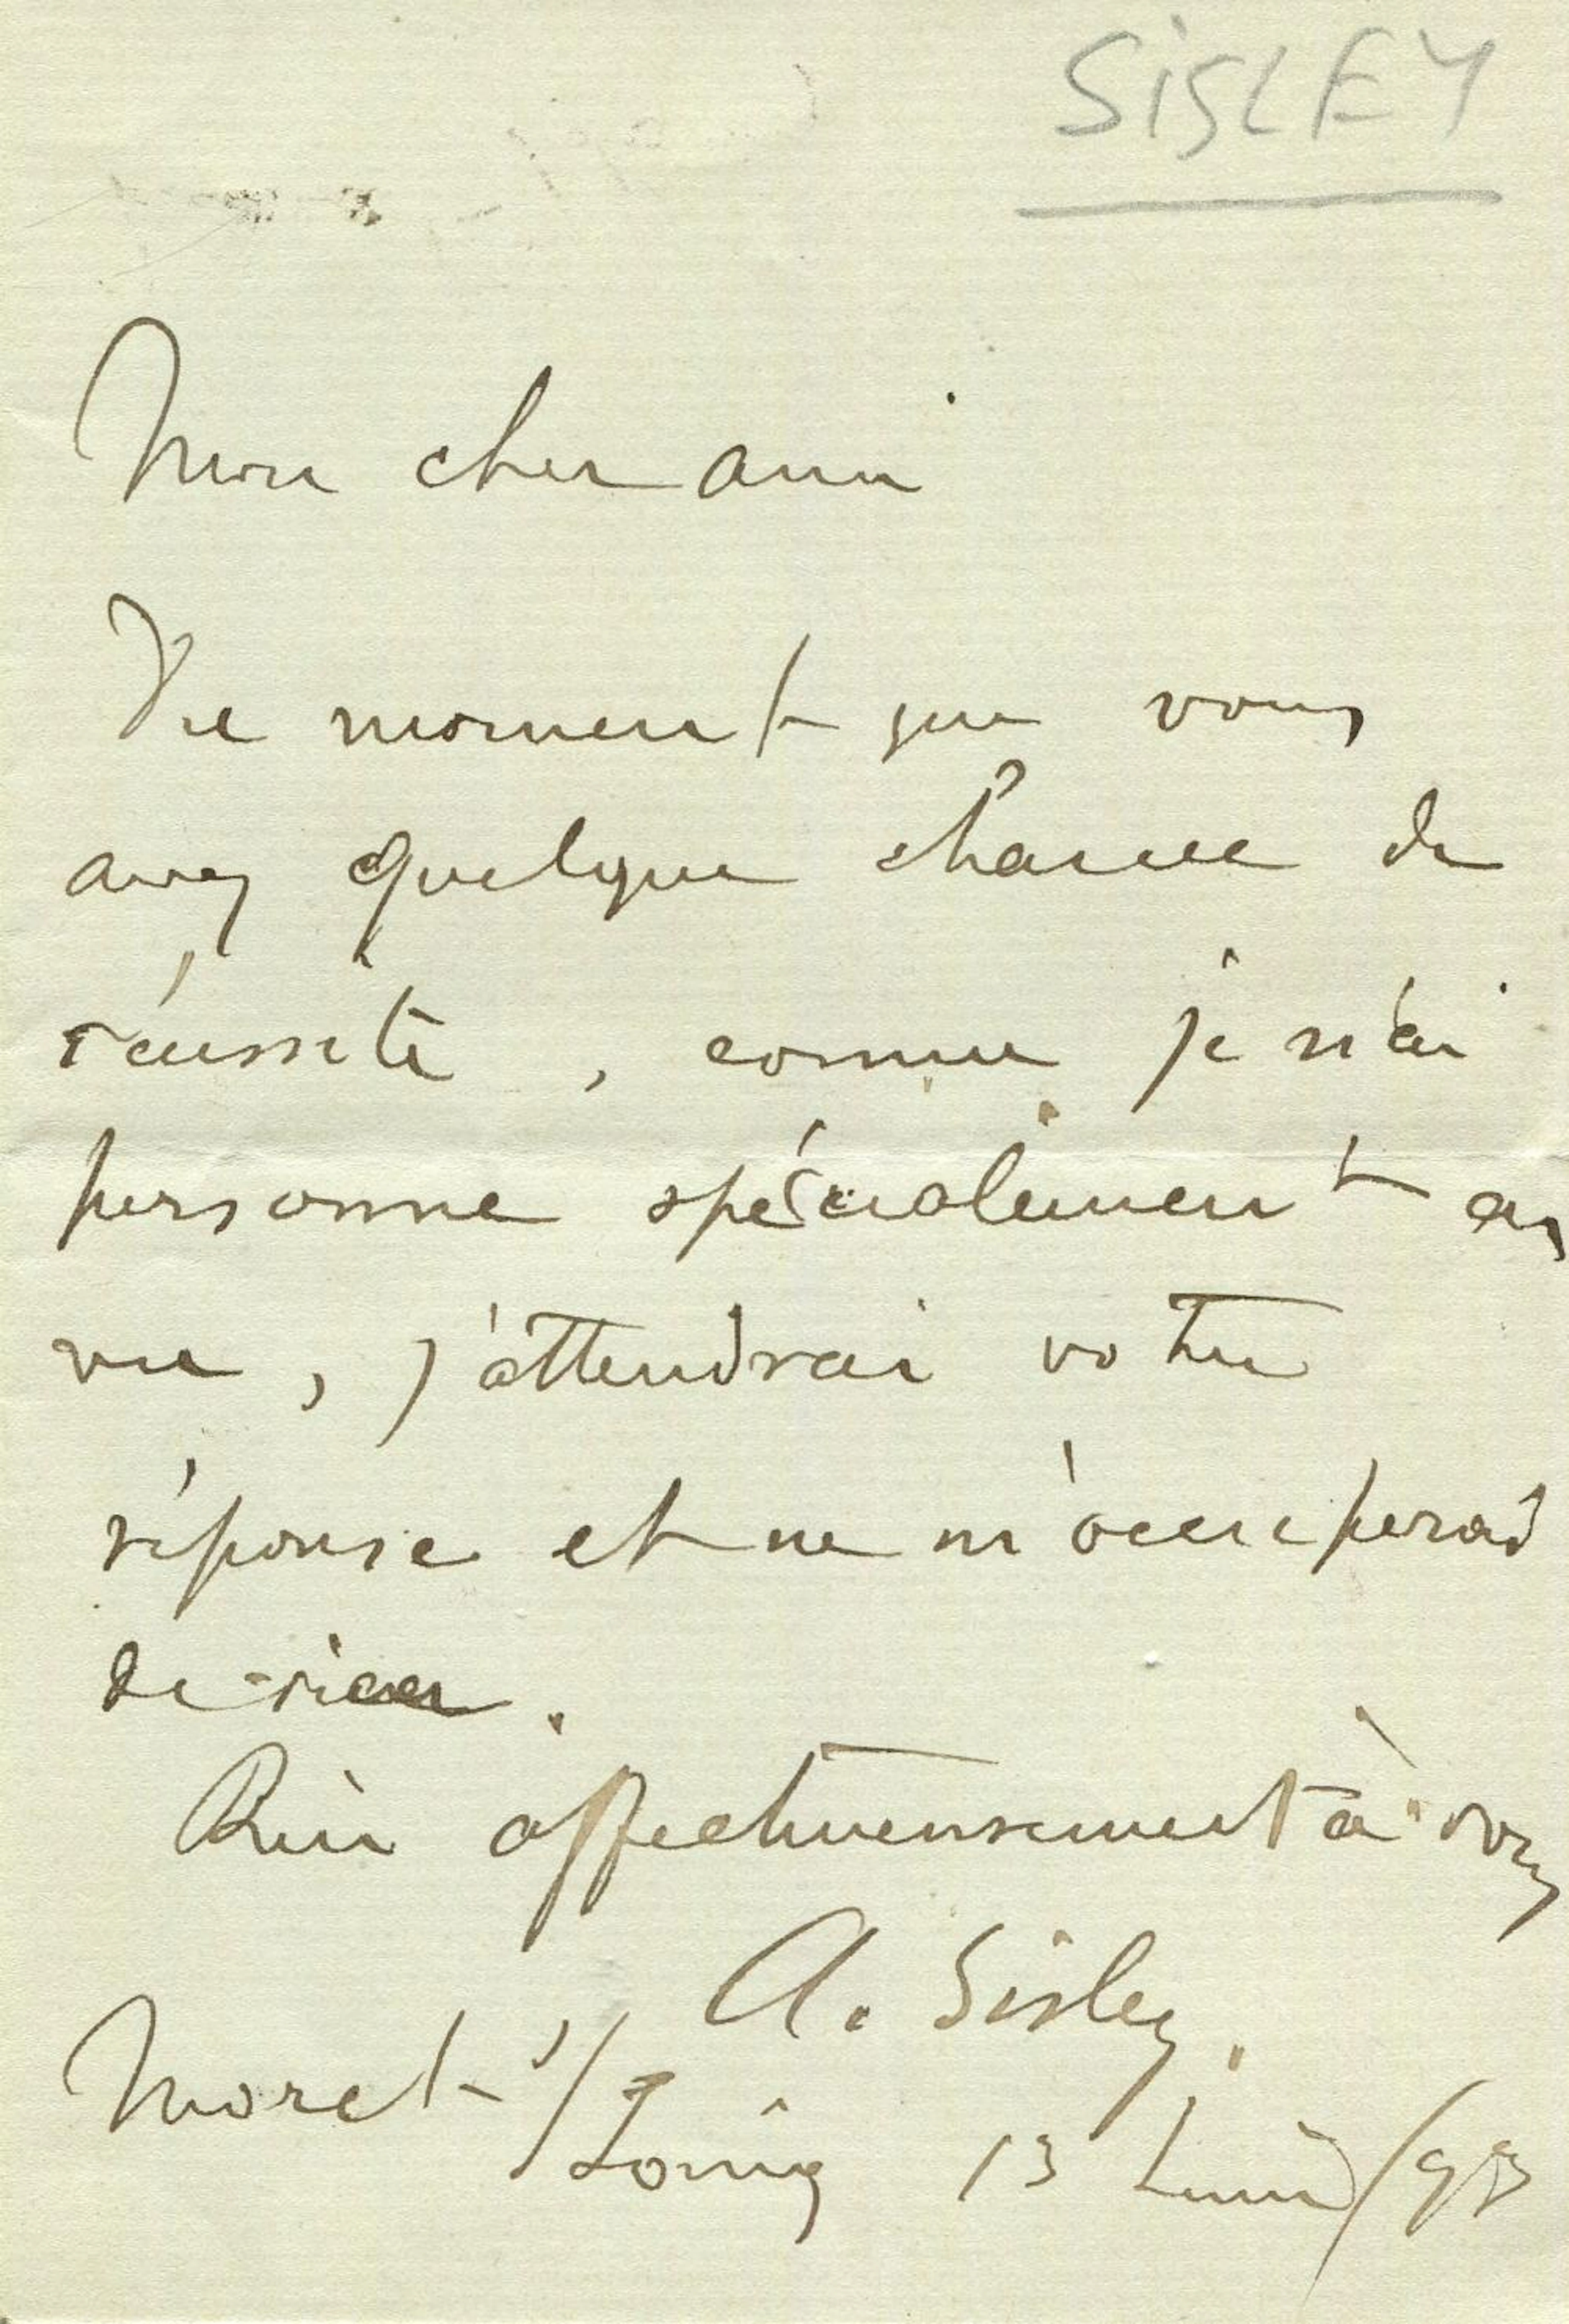 SISLEY
Mon cher ami
Du moment que vous
avez quelque chance de
réussite, comme je n'ai
personne spécialement en
vue, j'attendrai votre
réponse et ne m'occuperai
de rien.
Bien affectueusement à vous
A. Sisley.
Moret s/
Loing 13 Juin/93